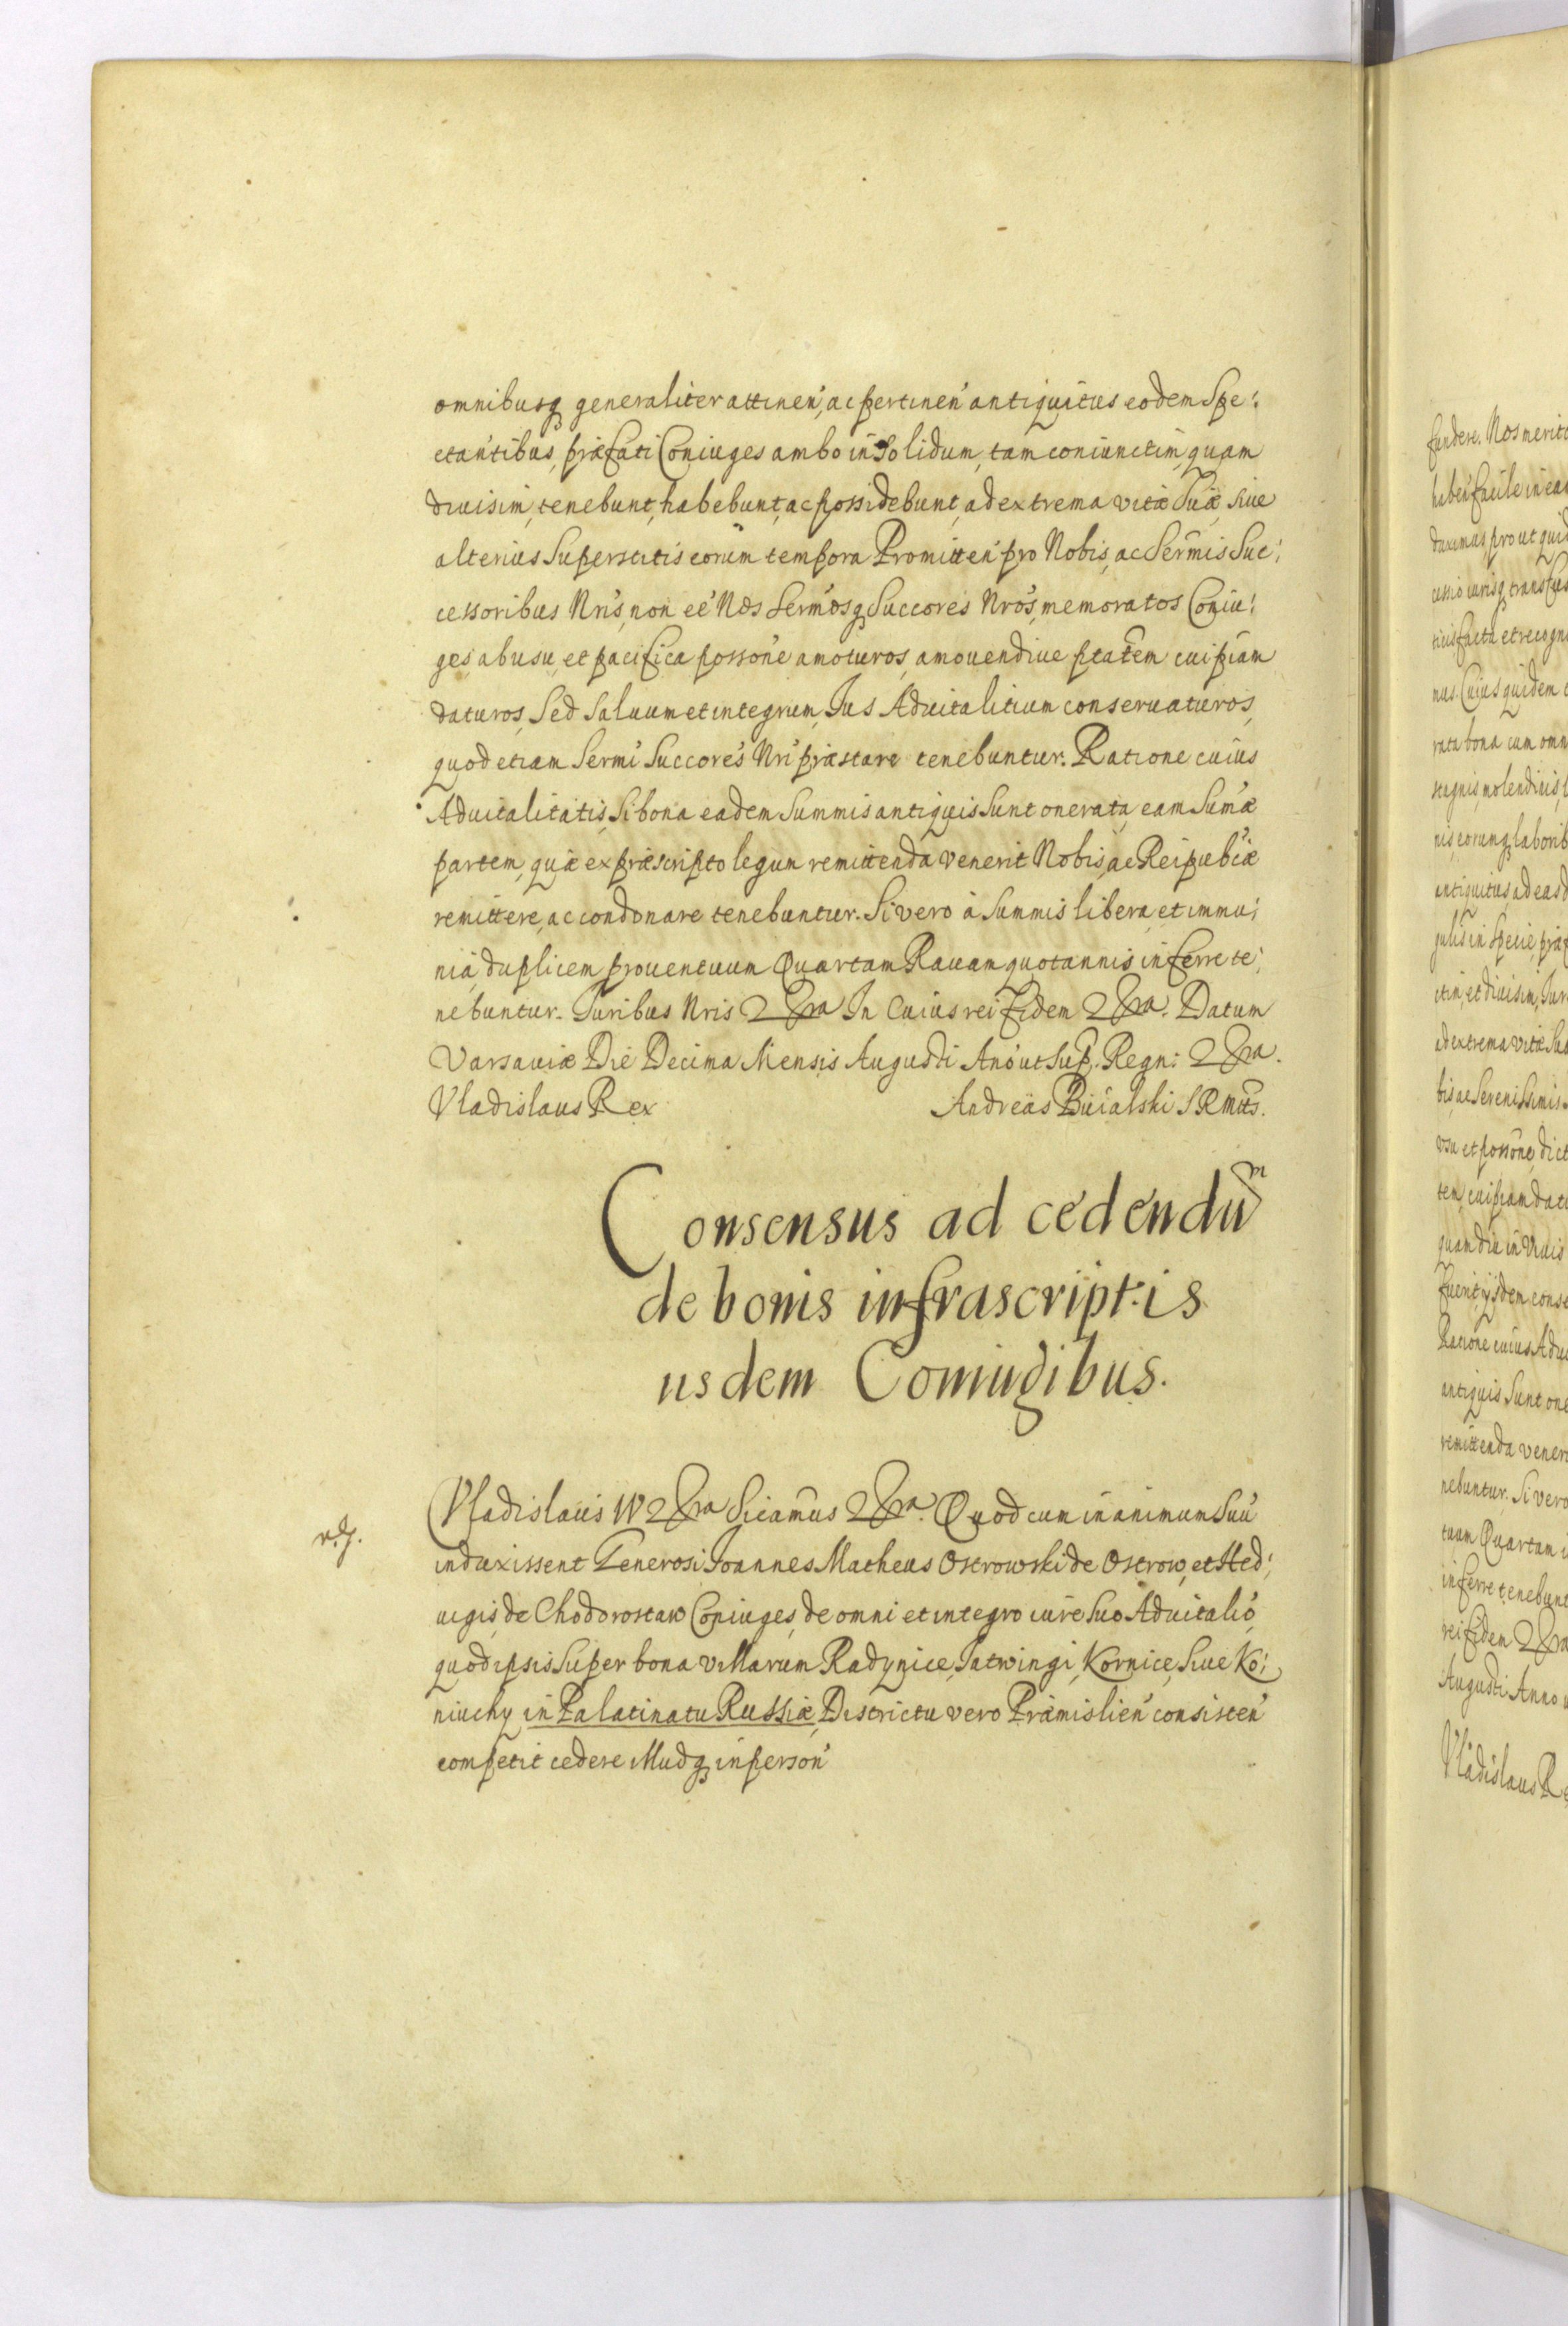 omnibusq generaliter attinen', ac pertinen' antiquitus eodem Spe:
ctantibus, præfati Coniuges ambo in Solidum, tam coniunctim, quam
diuisim, tenebunt, habebunt, ac possidebunt, ad extrema vitæ Suæ, Siue
alterius Superstitis eorum tempora Promitten' pro Nobis, ac Sermis Suc:
cessoribus Nris, non eé Nos Sermosq Succores Nros, memoratos Coniu:
ges, ab usu, et pacifica possone amoturos, amouendiue ptatem cuipiam
daturos, Sed Saluum et integrum, Jus Aduitalitium conseruaturos,
quod etiam Sermi Succores Nri præstare tenebuntur. Ratione cuius
Aduitalitatis, Si bona eadem Summis antiquis Sunt onerata, eam Sumæ
partem, quæ ex præscripto legum remittenda venerit Nobis, ac Reipublcæ
remittere, ac condonare tenebuntur. Si vero à Summis libera, et immu:
nia, duplicem prouentuum Quartam Rauam quotannis inferre te:
nebuntur. Juribus Nris 2ra In Cuius rei fidem 2ra. Datum
Varsauiæ Die Decima Mensis Augusti Ano ut Sup. Regn: 2ra.
Vladislaus Rex Andreas
Consensus ad cedendum
de bonis infrascriptis
iisdem Coniugibus.
Vladislaus IV 2ra Sicamus 2ra. Quod cum in animum Suu
induxissent Generosi Joannes Matheus Ostrowski de Ostrow, et Hed:
uigis, de Chodorostaw Coniuges, de omni et integro iure Suo Aduitalio,
quod ipsis Super bona villarum Radynice, Jatwingi, Kornice, Siue Ko:
niuchy in Palatinatu Russiæ, Districtu vero Præmislien' consisten'
competit cedere illudq in person'
fundere. Nos merito
haben' facile in ea
duximus, prout qui
cessio iurisq transfus
nus. Cuius quidem
rata bona cum omn
stagnis, molendinis,
nis, eorumq laborib
antiquitus ad eas
ctim, et diuisim,
ad extrema vitæ Su
bis, ac Serenissimis
vsu et possone, dict
tem, cuipiam dat
quamdiu in Viuis
fuerit, ijsdem conse
Ratione cuius Adui
antiquis Sunt one
remittenda vener
nebuntur. Si vero
tuum Quartam
inferre tenebunt
rei fidem 2ra
Augusti Anno
Vladislaus Re